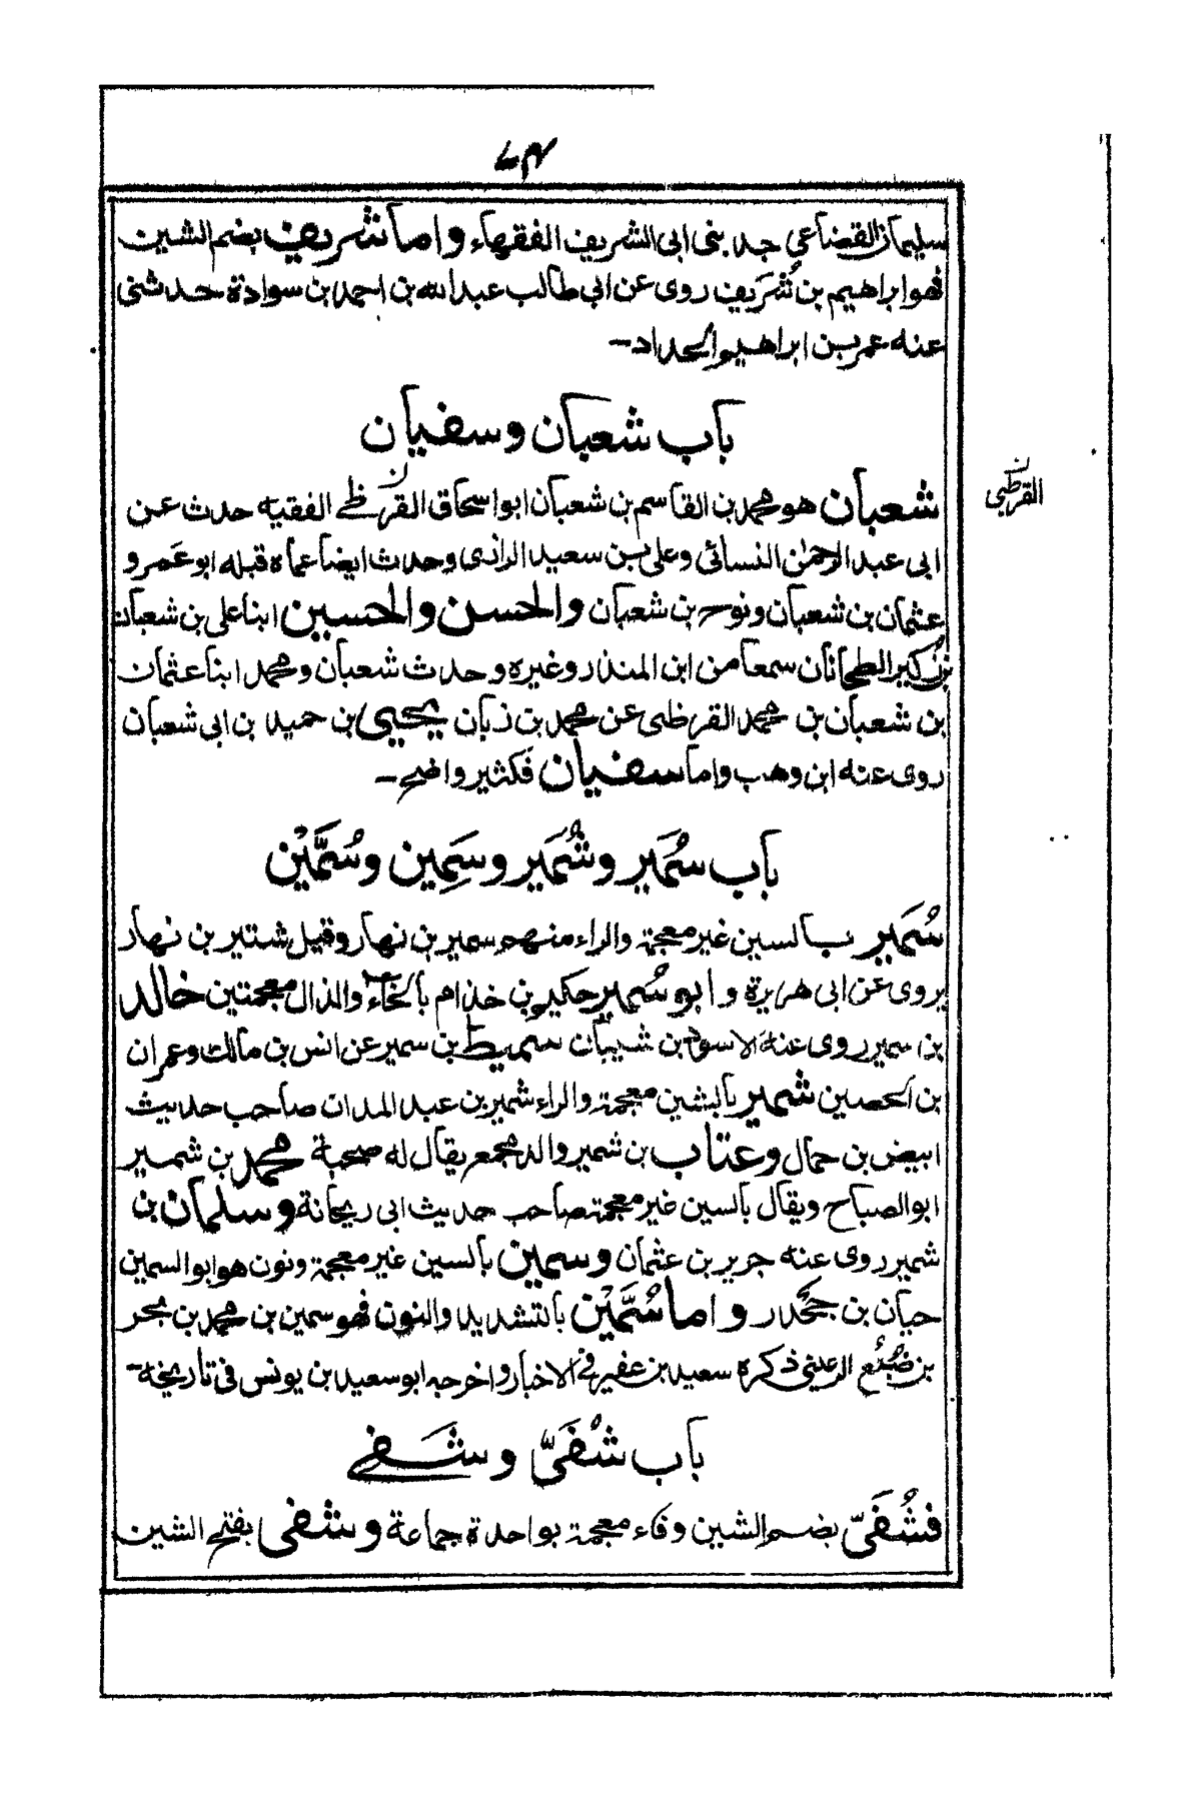 ٧٤
سليمان القضاعي جد بنى ابى الشريف الفقهاء واما شريف بضم الشين
فهو ابراهيم بن شُرَيف روى عن ابي طالب عبد الله بن احمد بن سوادة حدثنى
عنه عمر بن ابراهيم الحداد-
باب شعبان وسفيان
شعبان هو محمد بن القاسم بن شعبان ابو اسحاق القرظي الفقيه حدث عن
القرطبى ن
ابى عبد الرحمٰن النسائى وعلى بن سعيد الرازى وحدث ايضا عماه قبله ابو عَمرو
عثمان بن شعبان ونوح بن شعبان والحسن والحسين ابنا على بن شعبان
بن كبير الطحانان سمعا من ابن المنذر وغيره وحدث شعبان ومحمد ابنا عثمان
بن شعبان بن محمد القرظى عن محمد بن زبان يحيى بن حميد بن ابى شعبان
روى عنه ابن وهب واما سفيان فكثير واضح-
باب سُمَير وشُمَير وسَمِين وسُمَّيْن
سُمَير بالسين غير معجمة والراء منهم سمير بن نهار وقيل شتير بن نهار
يروى عن ابى هريرة وابو سُمير حكيم بن خذام بالخاء والذال معجمتين خالد
بن سمير روى عنه الاسود بن شيبان سميط بن سمير عن انس بن مالك وعمران
بن الحصين شمير بالشين معجمة والراء شمير بن عبد المدان صاحب حديث
ابيض بن حمال وعتاب بن شمير والد مجمع يقال له صحبة محمد بن شمير
ابو الصباح ويقال بالسين غير معجمة صاحب حديث ابى ريحانة وسلمان بن
شمير روى عنه جرير بن عثمان وسمين بالسين غير معجمة ونون هو ابو السمين
حيان بن حجدر واما سُمَّيْن بالتشديد والنون فهو سمين بن محمد بن بحر
بن ضُبُع الرعيني ذكره سعيد بن عفير في الاخبار واخرجه ابو سعيد بن يونس فى تاريخه-
باب شُفَىّ وشَفى
فشُفَىّ بضم الشين وفاء معجمة بواحدة جماعة وشفى بفتح الشين